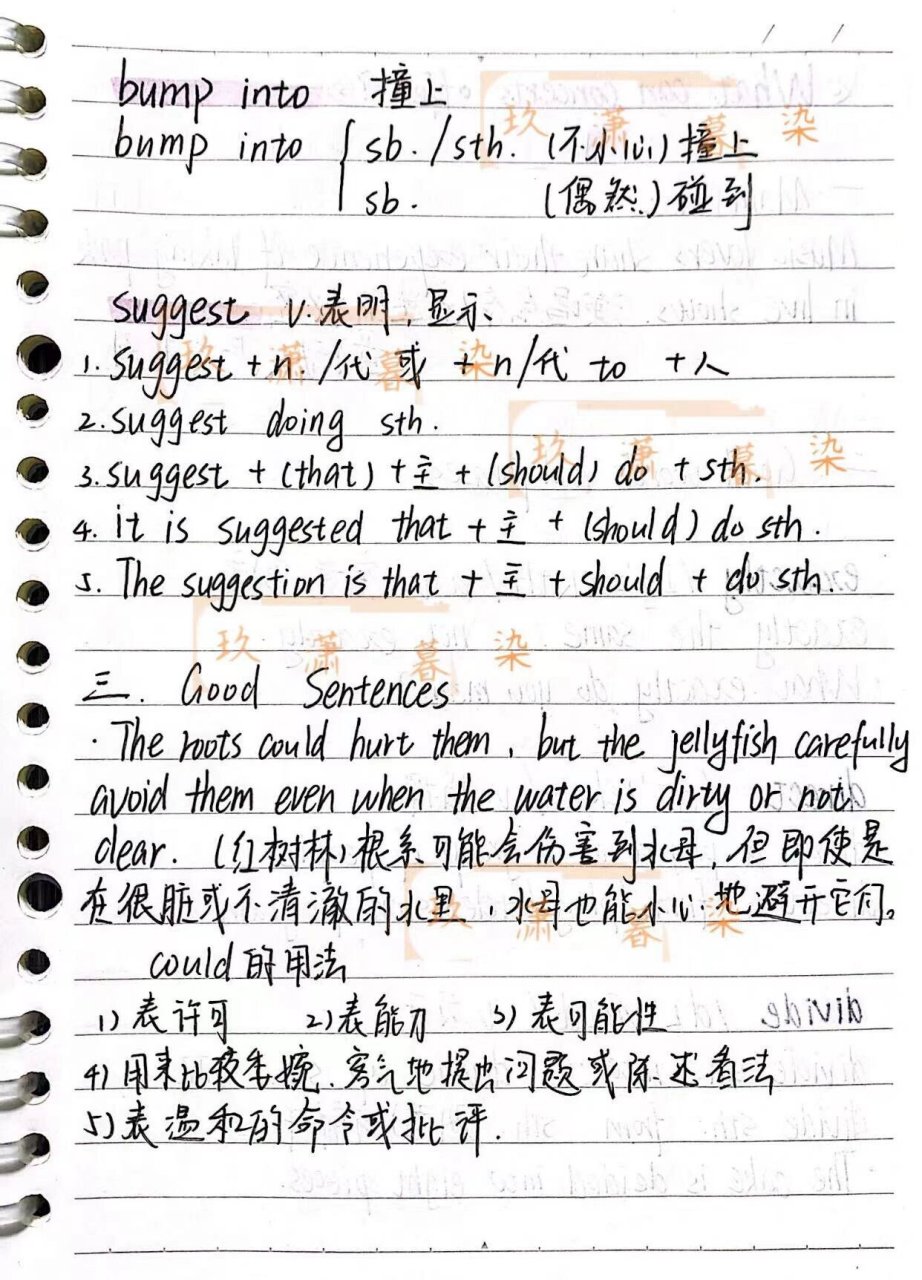 bump into 撞上
bump into { sb. / sth. (不小心) 撞上
sb. (偶然) 碰到
suggest v. 表明, 显示
1. suggest + n. /代 或 + n/代 to + 人
2. suggest doing sth.
3. suggest + (that) + 主 + (should) do + sth.
4. it is suggested that + 主 + (should) do sth.
5. The suggestion is that + 主 + should + do sth.
三. Good Sentences
· The roots could hurt them, but the jellyfish carefully
avoid them even when the water is dirty or not
clear. (红树林) 根系可能会伤害到水母, 但即使是
在很脏或不清澈的水里, 水母也能小心地避开它们。
could 的用法
1) 表许可 2) 表能力 3) 表可能性
4) 用来比较委婉、客气地提出问题或陈述看法
5) 表温和的命令或批评.
玖潇暮染
玖潇暮染
玖潇暮染
玖潇暮染
玖潇暮染